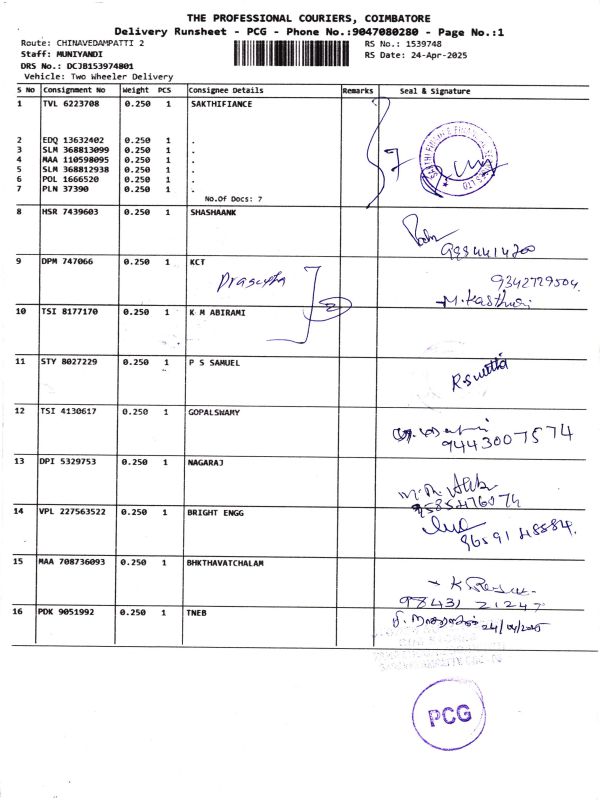 THE PROFESSIONAL COURIERS, COIMBATORE
Delivery Runsheet - PCG - Phone No.:9047080280 - Page No.:1
Route: CHINAVEDAMPATTI 2 RS No.: 1539748
Staff: MUNIYANDI RS Date: 24-Apr-2025
DRS No.: DCJB153974801
Vehicle: Two Wheeler Delivery
S No Consignment No Weight PCS Consignee Details Remarks Seal & Signature
1 TVL 6223708 0.250 1 SAKTHIFIANCE
2 EDQ 13632402 0.250 1 .
3 SLM 368813099 0.250 1 .
4 MAA 110598095 0.250 1 . 7
5 SLM 368812938 0.250 1 .
6 POL 1666520 0.250 1 .
7 PLN 37390 0.250 1 .
No.Of Docs: 7
8 HSR 7439603 0.250 1 SHASHAANK
9 DPM 747066 0.250 1 KCT 9342729504
2 M.Kasthuri
10 TSI 8177170 0.250 1 K M ABIRAMI
11 STY 8027229 0.250 1 P S SAMUEL
12 TSI 4130617 0.250 1 GOPALSWAMY
9443007574
13 DPI 5329753 0.250 1 NAGARAJ
9585476074
14 VPL 227563522 0.250 1 BRIGHT ENGG
9659148584
15 MAA 708736093 0.250 1 BHKTHAVATCHALAM
98431 21247
16 PDK 9051992 0.250 1 TNEB 24/04/2025
PCG